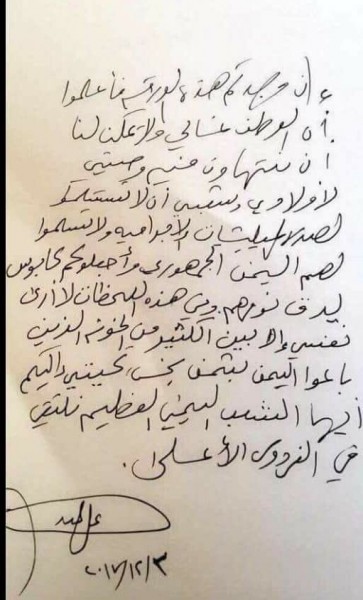 إن وجدتم هذه الورقة فاعلموا
أن الوطن غالي ولا يمكن لنا
أن نتهاون فيه وصيتي
لأولادي وشعبي أن لا تستسلمو
لهذه المليشيات الإجرامية ولا تسلموا
لهم اليمن الجمهوري وأجعلوكم كابوس
يدق نومهم وفي هذه اللحظات لا أرى
نفسي إلا بين الكثير من الخونة الذين
باعوا اليمن بثمن بخس تحيتي إليكم
أيها الشعب اليمني العظيم نلتقي
في الفردوس الأعلى.
٢٠١٧/١٢/٣